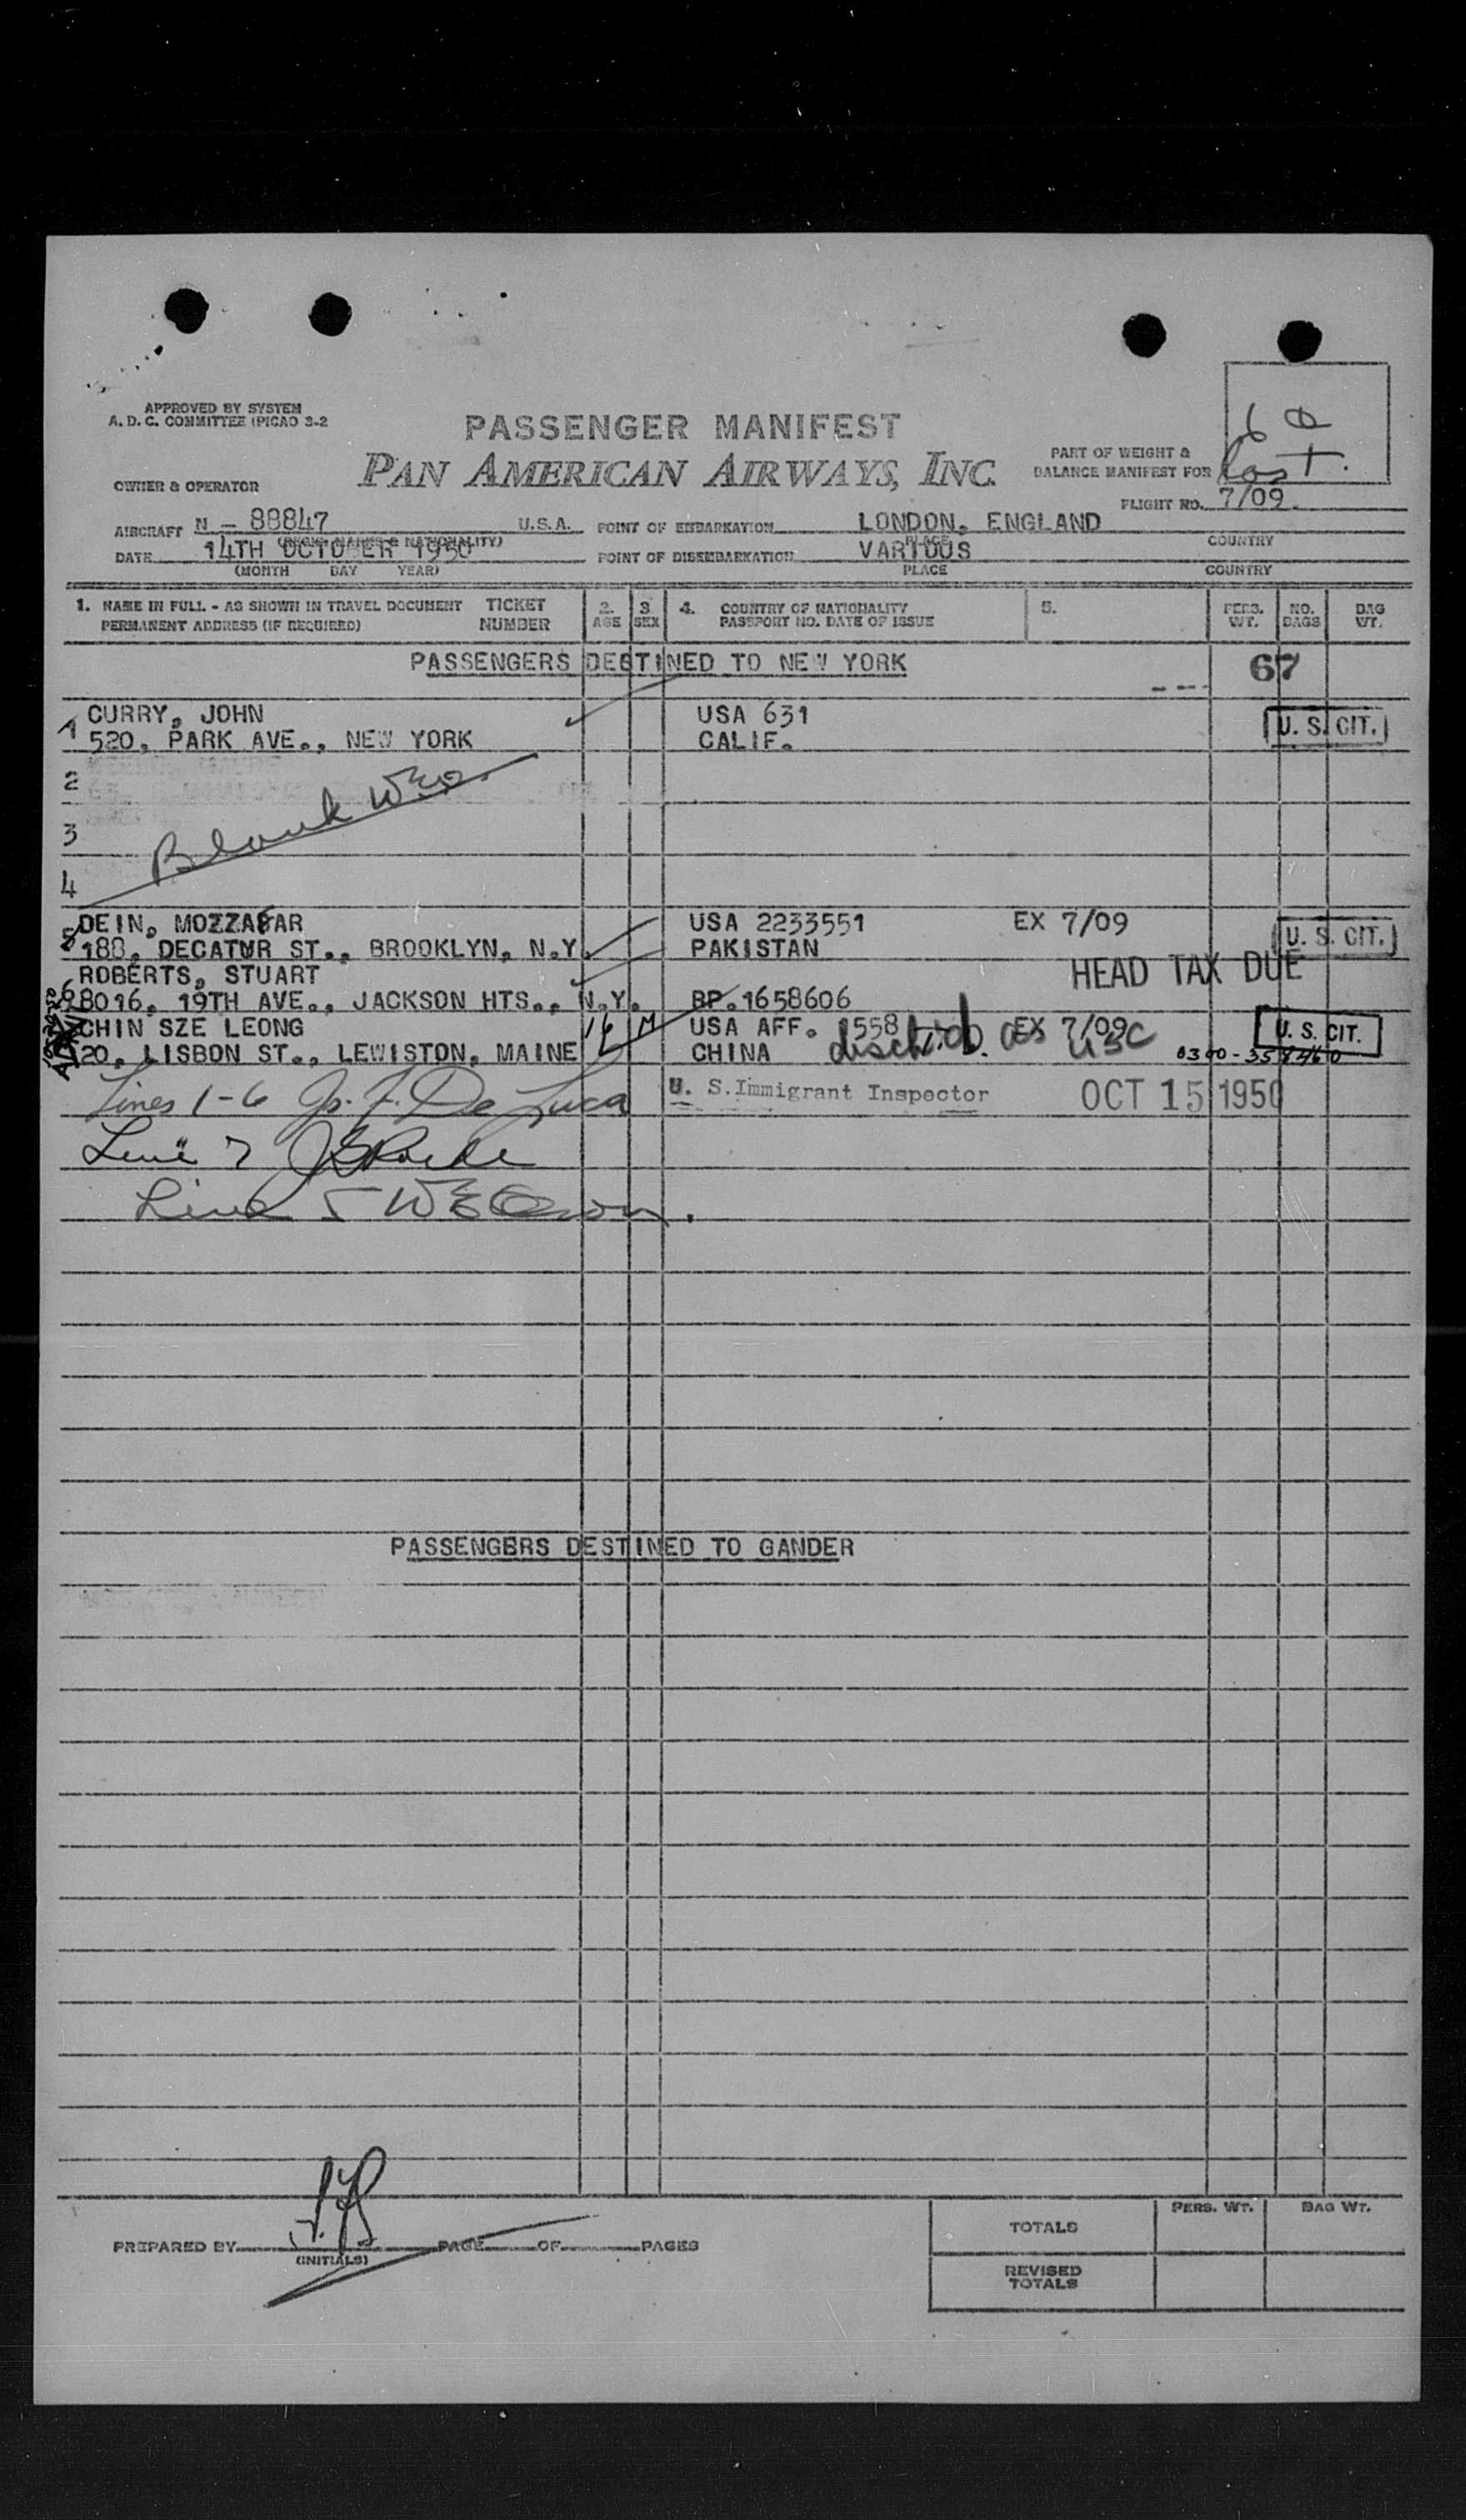 APPROVED BY SYSTEM
A. D. C. COMMITTEE (PICAO 3-2
PASSENGER MANIFEST
PAN AMERICAN AIRWAYS, INC.
OWNER & OPERATOR
PART OF WEIGHT &
BALANCE MANIFEST FOR
FLIGHT NO. 7/09.
AIRCRAFT N - 88847 U.S.A. POINT OF EMBARKATION LONDON, ENGLAND
PLACE COUNTRY
DATE 14TH OCTOBER 1950 POINT OF DISEMBARKATION VARIOUS
(MONTH DAY YEAR) PLACE COUNTRY
1. NAME IN FULL - AS SHOWN IN TRAVEL DOCUMENT TICKET 2. 3. 4. COUNTRY OF NATIONALITY 5. PERS. NO. BAG
PERMANENT ADDRESS (IF REQUIRED) NUMBER AGE SEX PASSPORT NO. DATE OF ISSUE WT. BAGS WT.
PASSENGERS DESTINED TO NEW YORK 67
CURRY, JOHN USA 631
1 520, PARK AVE., NEW YORK CALIF. U. S. CIT.
2
3 Blank
4
DEIN, MOZZAFAR USA 2233551 EX 7/09
5 188, DECATUR ST., BROOKLYN, N.Y. PAKISTAN U. S. CIT.
ROBERTS, STUART HEAD TAX DUE
6 8016, 19TH AVE., JACKSON HTS., N.Y. BP.1658606
CHIN SZE LEONG 16 M USA AFF. 1558 EX 7/09 U. S. CIT.
20, LISBON ST., LEWISTON, MAINE CHINA USC 0300-358460
Lines 1-6 De Luca U. S. Immigrant Inspector OCT 15 1950
Line 7
Line 5
PASSENGERS DESTINED TO GANDER
PREPARED BY (INITIALS) PAGE OF PAGES
PERS. WT. BAG WT.
TOTALS
REVISED
TOTALS